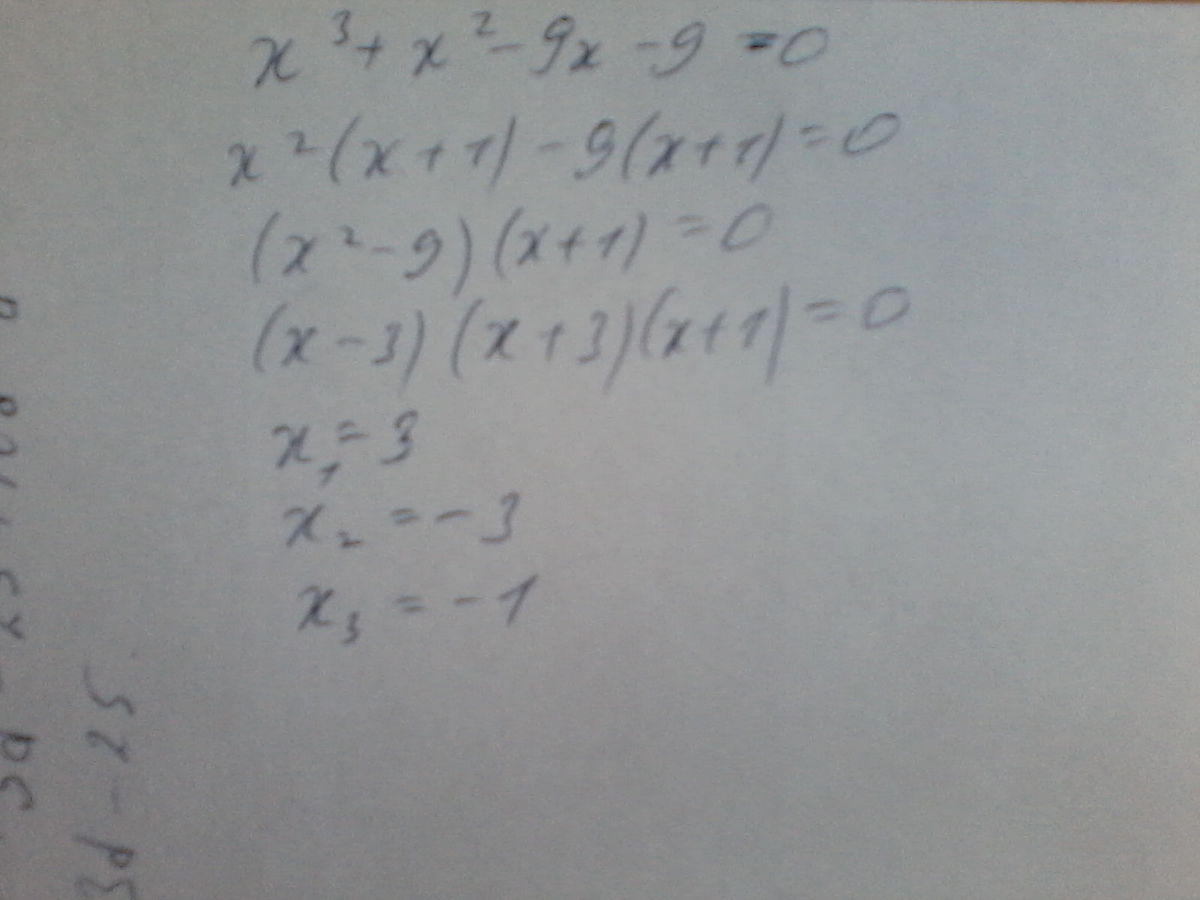 x³ + x² - 9x - 9 = 0
x² (x + 1) - 9 (x + 1) = 0
(x² - 9) (x + 1) = 0
(x - 3) (x + 3) (x + 1) = 0
x₁ = 3
x₂ = - 3
x₃ = - 1